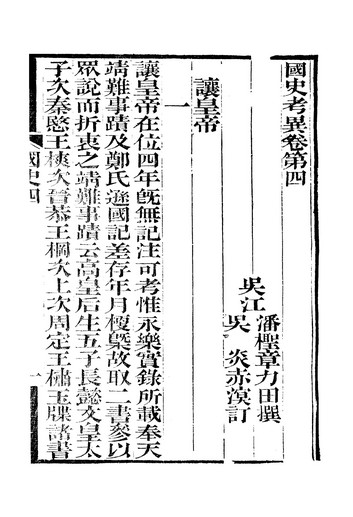 國史考異卷第四
吳江潘檉章力田撰
吳炎赤溟訂
讓皇帝
一
讓皇帝在位四年旣無記注可考惟永樂實錄所載奉天
靖難事蹟及鄭氏遜國記差存年月梗槩故取二書參以
眾說而折衷之靖難事蹟云高皇后生五子長懿文皇太
子次秦愍王樉次晉恭王棡次上次周定王橚玉牒諸書
國史四
一